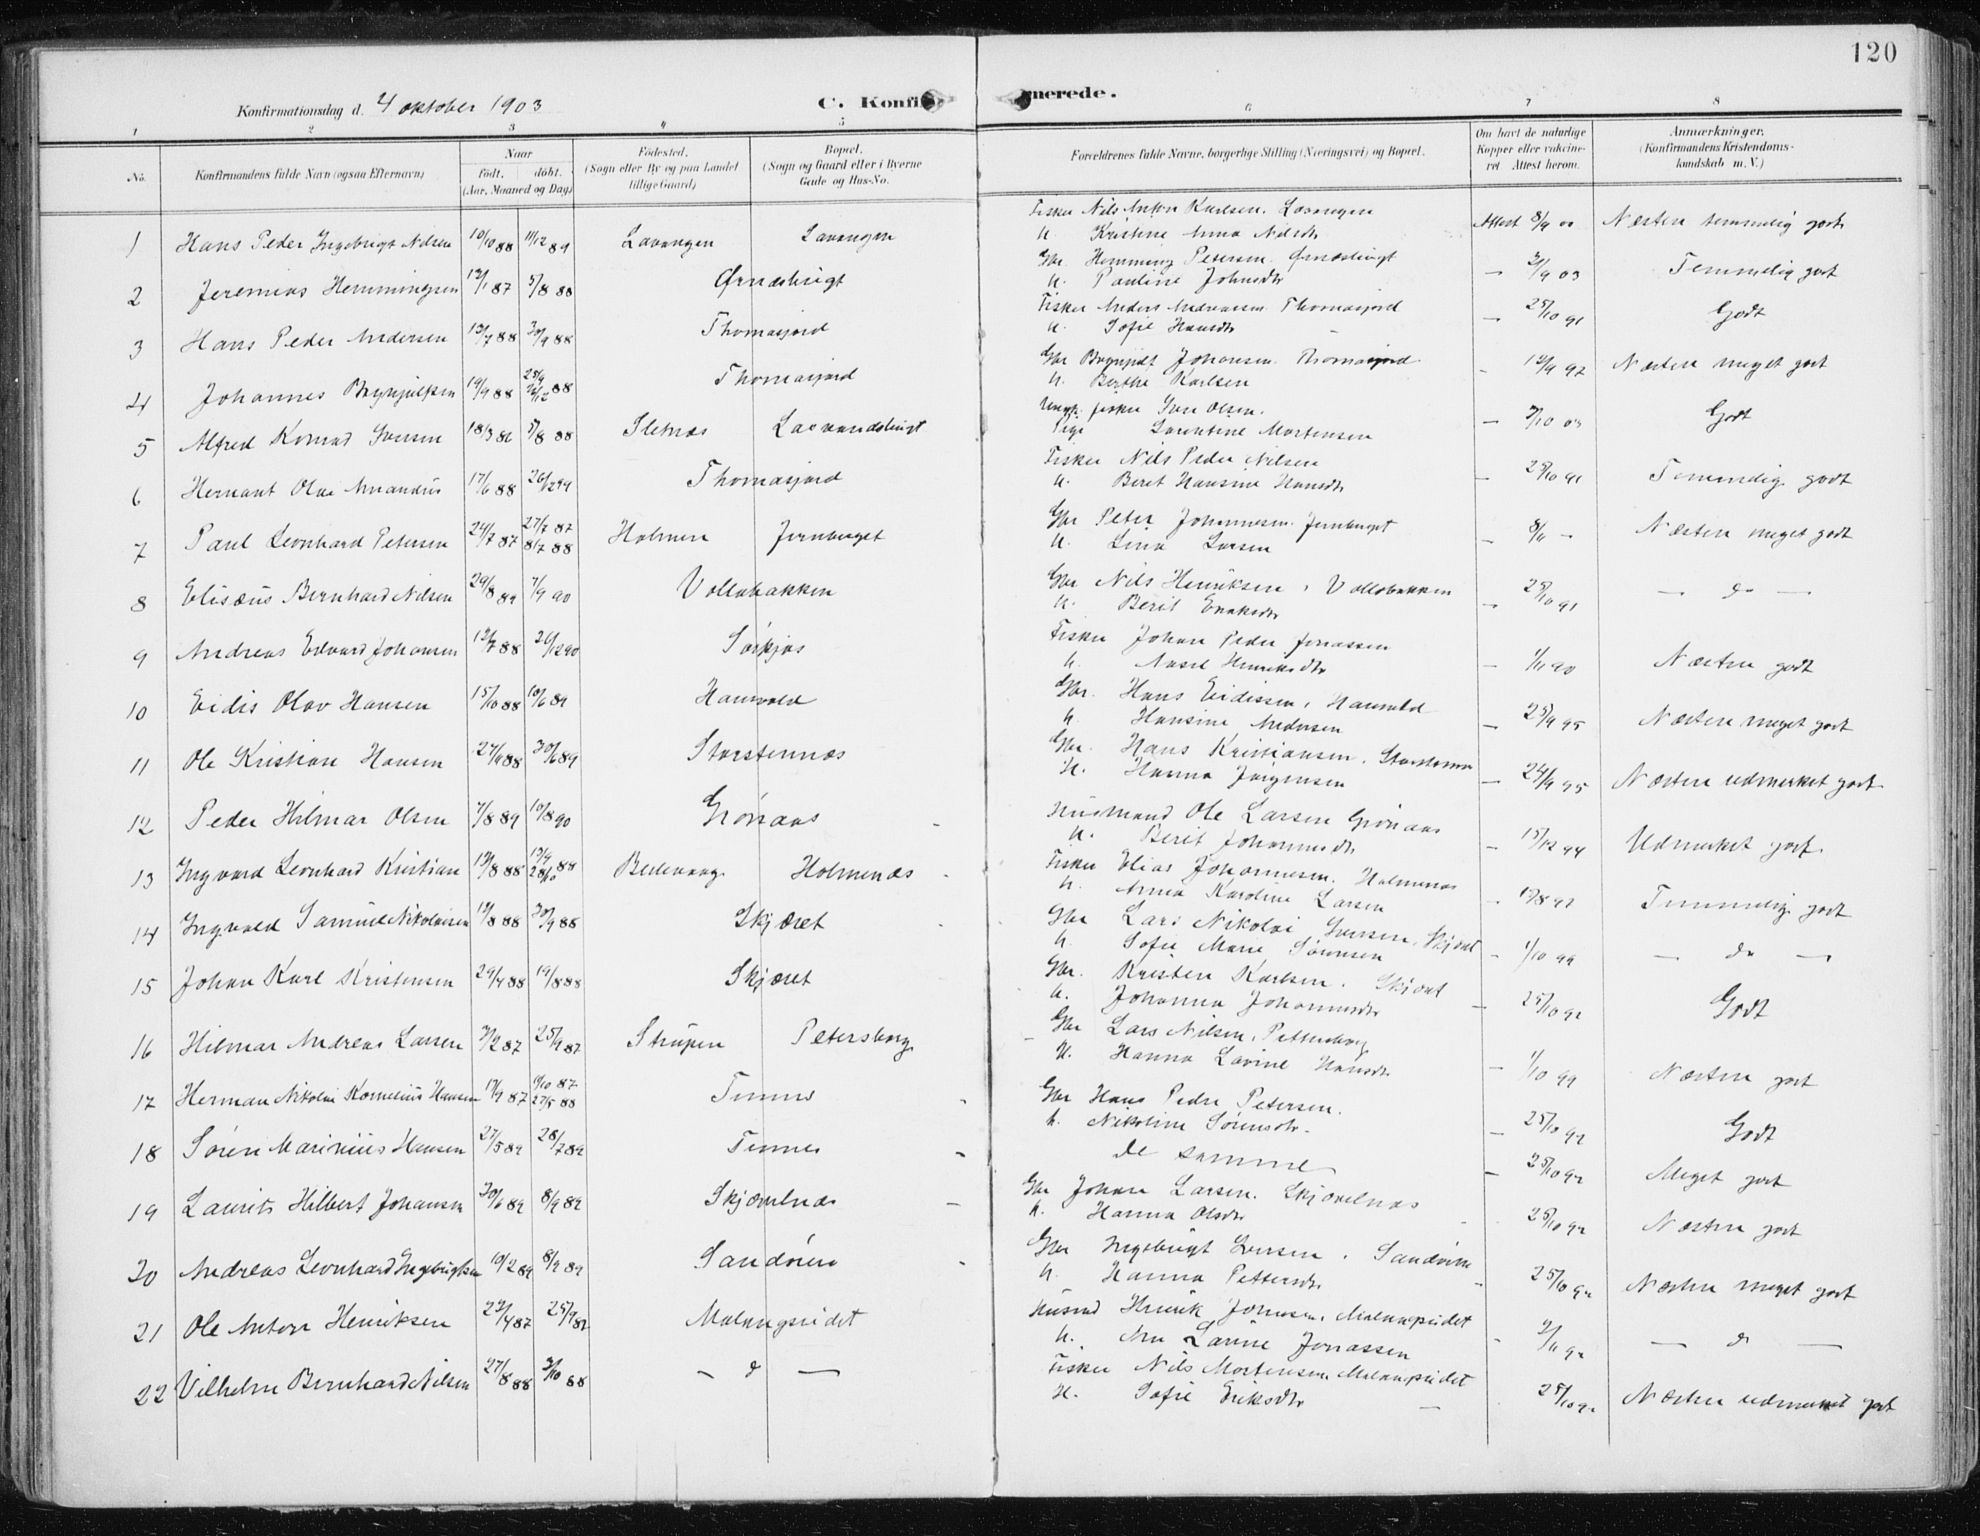 120
Konfirmationsdag d. 4 oktober 1903
C. Konfirmerede.
1 2 3 4 5 6 7 8
No.
Konfirmandens fulde Navn (ogsaa Efternavn)
Naar
födt. döbt.
(Aar, Maaned og Dag)
Födested.
(Sogn eller By og paa Landet tillige Gaard)
Bopæl.
(Sogn og Gaard eller i Byerne Gade og Hus-No.
Forældrenes fulde Navne, borgerlige Stilling (Næringsvei) og Bopæl.
Om havt de naturlige Kopper eller vaccineret Attest herom.
Anmærkninger.
(Konfirmandens Kristendomskundskab m. V.)
1 Hans Peder Ingebrigt Nilsen 10/10 88 11/12 89 Lavangen Lavangen Fisker Nils Anton Karlsen. Lavangen Attest 8/9 00 Næsten temmelig godt
h. Kristine Anna Nilsdtr
2 Jeremias Hemmingsen 12/1 87 5/8 88 Ørnæsbugt Gbr. Hemming Petersen Ørnæsbugt 2/9 03 Temmelig godt
h. Pauline Johnsdtr
3 Hans Peder Andersen 13/7 88 30/9 88 Thomasjord Fisker Anders Andreassen Thomasjord 25/10 91 Godt
h. Sofie Hansdtr
4 Johannes Brynjulfsen 19/9 88 Thomasjord Gbr Brynjulf Johansen Thomasjord 12/9 92 Næsten meget godt
h. Berthe Karlsen
5 Alfred Konrad Iversen 18/3 86 5/8 88 Sletnæs Lavandsbugt Ungk. fisker Iver Olsen. 3/10 03 Godt
Pige Lorentine Mortensen
6 Hernant Olai Amandus 17/6 88 26/12 89 Thomasjord Fisker Nils Peder Nilsen 25/10 91 Temmelig godt
h. Beret Hansine Hansdtr
7 Paul Leonhard Petersen 24/7 87 27/7 87 8/7 88 Holmen Jernberget Gbr Peter Johannesen Jernberget 8/11 - Næsten meget godt
h. Lina Larsen
8 Elisæus Bernhard Nilsen 29/8 89 7/9 90 Vollabakken Gbr Nils Henriksen, Vollabakken 25/10 91 — do —
h. Berit Eriksdtr
9 Andreas Edvard Johansen 12/7 88 26/12 90 Sørkjos Fisker Johan Peder Jonassen 1/11 90 Næsten godt
h. Henriksdtr
10 Eidis Olav Hansen 15/10 88 10/6 89 Hamvold Gbr. Hans Eidissen, Hamvold 25/9 95 Næsten meget godt
h. Hansine Andersen
11 Ole Kristian Hansen 27/9 88 30/6 89 Storstennæs Gbr. Hans Kristiansen. Storstennæs 24/9 95 Næsten udmerket godt
h. Hanna Jørgensen
12 Peder Hilmar Olsen 7/8 89 10/8 90 Grönaas Husmand Ole Larsen Grönaas 15/12 94 Udmerket godt
h. Berit Johannesdtr
13 Ingvard Leonhard Kristian 13/8 88 Holmenæs Fisker Elias Johannesen. Holmenæs Temmelig godt
h. Anna Karoline Larsen
14 Ingvald Samuel Nikolaisen 12/8 88 30/9 88 Skjæret Gbr Lars Nikolai Iversen, Skjæret 1/10 99 — do —
h. Sofie Marie Sørensen
15 Johan Karl Kristensen 29/4 88 19/8 88 Skjæret Gbr. Kristen Karlsen. Skjæret 25/10 92 Godt
h. Johanna Johannesdtr
16 Hilmar Andreas Larsen 3/2 87 25/9 87 Strupen Petersborg Gbr Lars Nilsen, Pettersborg 1/10 99 Næsten godt
h. Hanna Lovine Hansdtr
17 Herman Nikolai Kornelius Hansen 17/9 87 9/10 87 27/5 88 Tennes Gbr Hans Peder Petersen. 25/10 92 Godt
h. Nikoline Sørensdtr
18 Sören Marinius Hansen 27/5 89 28/7 89 Tennes de samme 25/10 92 Meget godt
19 Laurits Hilbert Johansen 20/6 89 8/9 89 Skjævelnæs Gbr Johan Larsen. Skjævelnæs 25/10 92 Næsten godt
h. Hanna Olsdtr
20 Andreas Leonhard Ingebrigtsen 10/2 89 8/9 89 Sandören Gbr Ingebrigt Iversen. Sandören 25/10 92 Næsten meget godt
h. Hanna Pettersdtr
21 Ole Anton Henriksen 22/4 87 25/9 87 Malangseidet Husmd Henrik Johnsen, Malangseidet 2/11 92 — do —
h. Ane Lavine Jonassen
22 Vilhelm Bernhard Nilsen 27/8 88 3/10 88 — do — Fisker Nils Mortensen, Malangseidet 25/10 92 Næsten udmerket godt
h. Sofie Eriksdtr